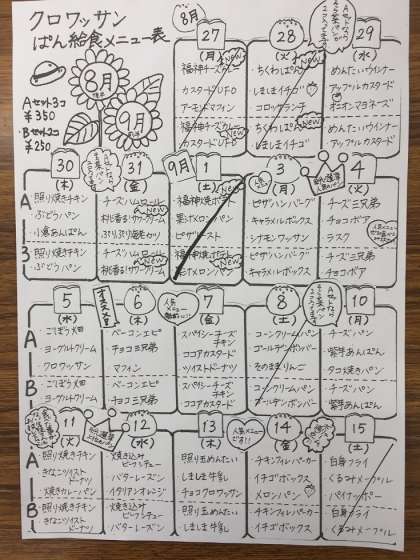 クロワッサン
ぱん給食メニュー表
8月
9月
Aセット3コ
¥350
Bセット2コ
¥250
8月
27
(月)
福神チーズカレー
NEW
カスタードUFO
アーモンドマフィン
福神チーズカレー
NEW
カスタードUFO
28
(火)
ちくわぱん
NEW
しましまイチゴ
コロッケランチ
ちくわぱん
NEW
しましまイチゴ
29
(水)
めんたいウインナー
アップルカスタード
オニオンマヨネーズ
めんたいウインナー
アップルカスタード
30
(木)
A
照り焼きチキン
ぶどうパン
小倉あんぱん
B
照り焼きチキン
ぶどうパン
31
(金)
チーズハムロール
NEW
桃香る!サワークリーム
ぷりぷり海老カツ
チーズハムロール
NEW
桃香る!サワークリーム
9月
1
(土)
福神焼ポテト
NEW
果汁メロンパン
ピザトースト
福神焼ポテト
NEW
果汁メロンパン
3
(月)
ピザハンバーグ
キャラメルボックス
シナモンワッサン
ピザハンバーグ
キャラメルボックス
4
(火)
チーズ三兄弟
チョコボア
ラスク
チーズ三兄弟
チョコボア
5
(水)
A
ごぼう大目
ヨーグルトクリーム
クロワッサン
B
ごぼう大目
ヨーグルトクリーム
オススメ日
6
(木)
ベーコンエピ
チョコ三兄弟
マフィン
ベーコンエピ
チョコ三兄弟
7
(金)
スパイシーチーズチキン
ココアカスタード
ツイストドーナツ
スパイシーチーズチキン
ココアカスタード
8
(土)
コーンクリームパン
ゴールデンボンバー
きのままりんご
コーンクリームパン
ゴールデンボンバー
10
(月)
チーズパン
紫芋あんぱん
タコ焼きパン
チーズパン
紫芋あんぱん
11
(火)
A
照り焼きチキン
きなこツイストドーナツ
焼きカレーパン
B
照り焼きチキン
きなこツイストドーナツ
12
(水)
焼き込みビーフシチュー
バターレーズン
イタリアンオレンジ
焼き込みビーフシチュー
バターレーズン
13
(木)
照り玉めんたい
しましま牛乳
チョコクロワッサン
照り玉めんたい
しましま牛乳
人気メニューです!!
14
(金)
チキンフィレバーガー
イチゴボックス
メロンパン
チキンフィレバーガー
イチゴボックス
15
(土)
白身フライ
くるみメープル
パイナッポー
白身フライ
くるみメープル